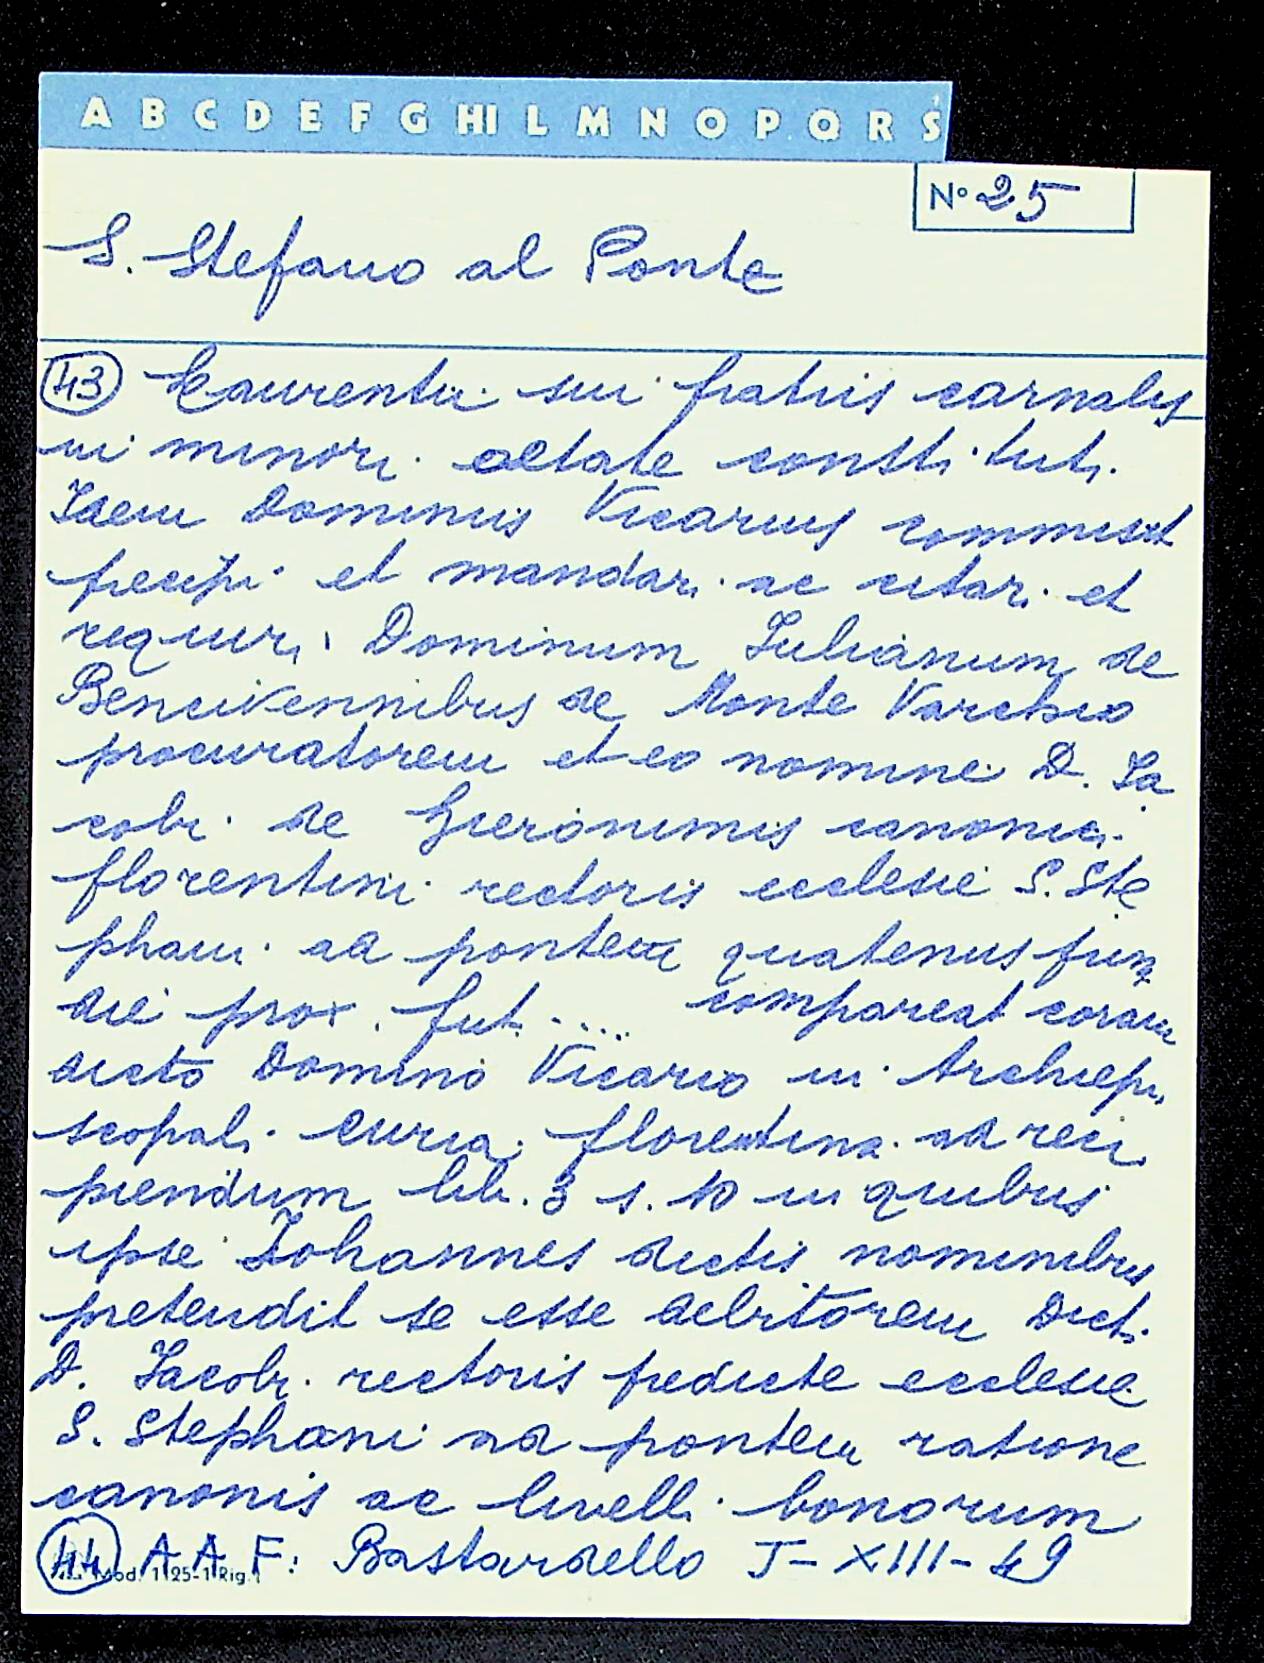 A B C D E F G HI L M N O P Q R S
N° 25
S. Stefano al Ponte
43 Laurentii sui fratris carnalis
in minori aetate constituti.
Idem Dominus Vicarius commisit
precipi et mandari ac citari et
requiri Dominum Iulianum de
Bencivennibus de Monte Varchio
procuratorem et eo nomine D. Ia
cobi de Gieronimis canonici
florentini rectoris ecclesie S. Ste
phani ad pontem quatenus
die prox. fut. .... compareat coram
dicto Domino Vicario in Archiepi
scopali curia florentina ad reci
piendum lib. 3 s. 10 in quibus
ipse Iohannes dictis nominibus
pretendit se esse debitorem dicti
D. Iacobi rectoris predicte ecclesie
S. Stephani ad pontem ratione
canonis ac livelli bonorum
44 A.A.F: Bastardello I-XIII-49
Mod. 1125-1 Rig.